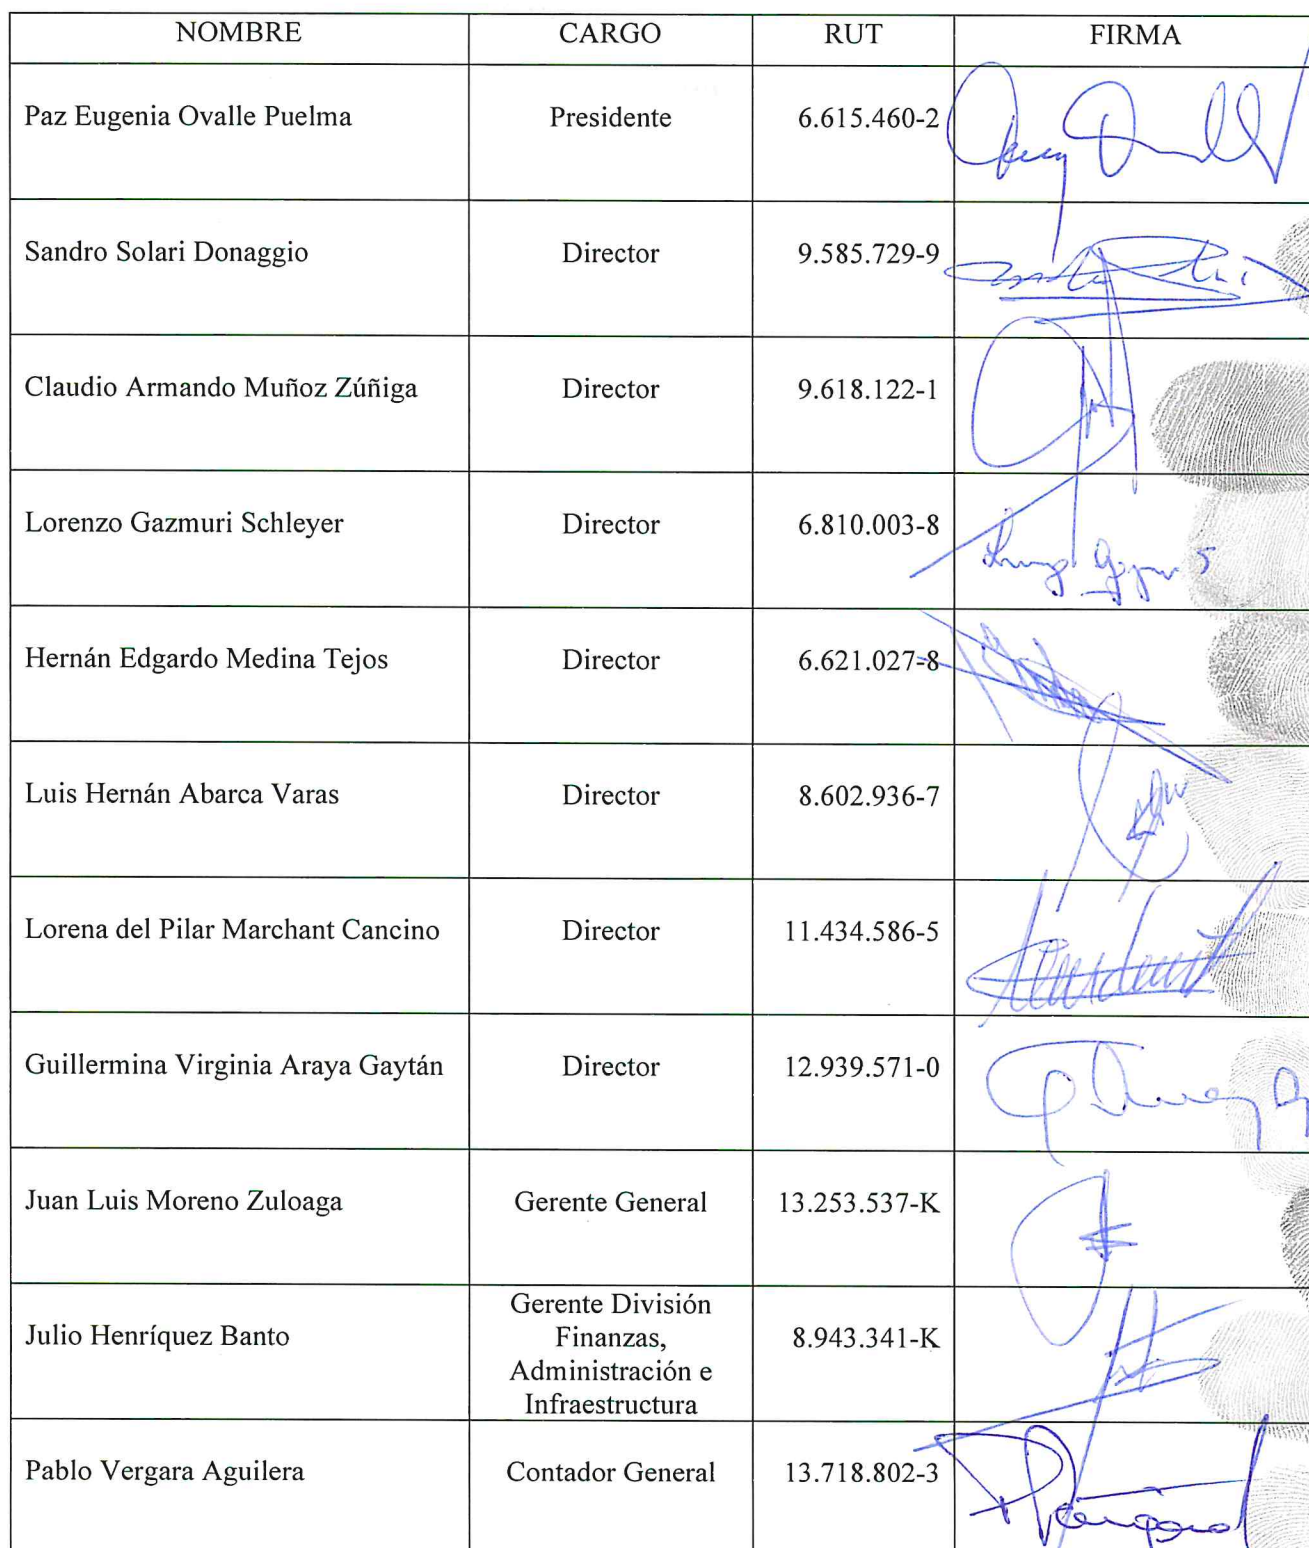 NOMBRE CARGO RUT FIRMA
Paz Eugenia Ovalle Puelma Presidente 6.615.460-2
Sandro Solari Donaggio Director 9.585.729-9
Claudio Armando Muñoz Zúñiga Director 9.618.122-1
Lorenzo Gazmuri Schleyer Director 6.810.003-8
Hernán Edgardo Medina Tejos Director 6.621.027-8
Luis Hernán Abarca Varas Director 8.602.936-7
Lorena del Pilar Marchant Cancino Director 11.434.586-5
Guillermina Virginia Araya Gaytán Director 12.939.571-0
Juan Luis Moreno Zuloaga Gerente General 13.253.537-K
Julio Henríquez Banto Gerente División 8.943.341-K
Finanzas,
Administración e
Infraestructura
Pablo Vergara Aguilera Contador General 13.718.802-3